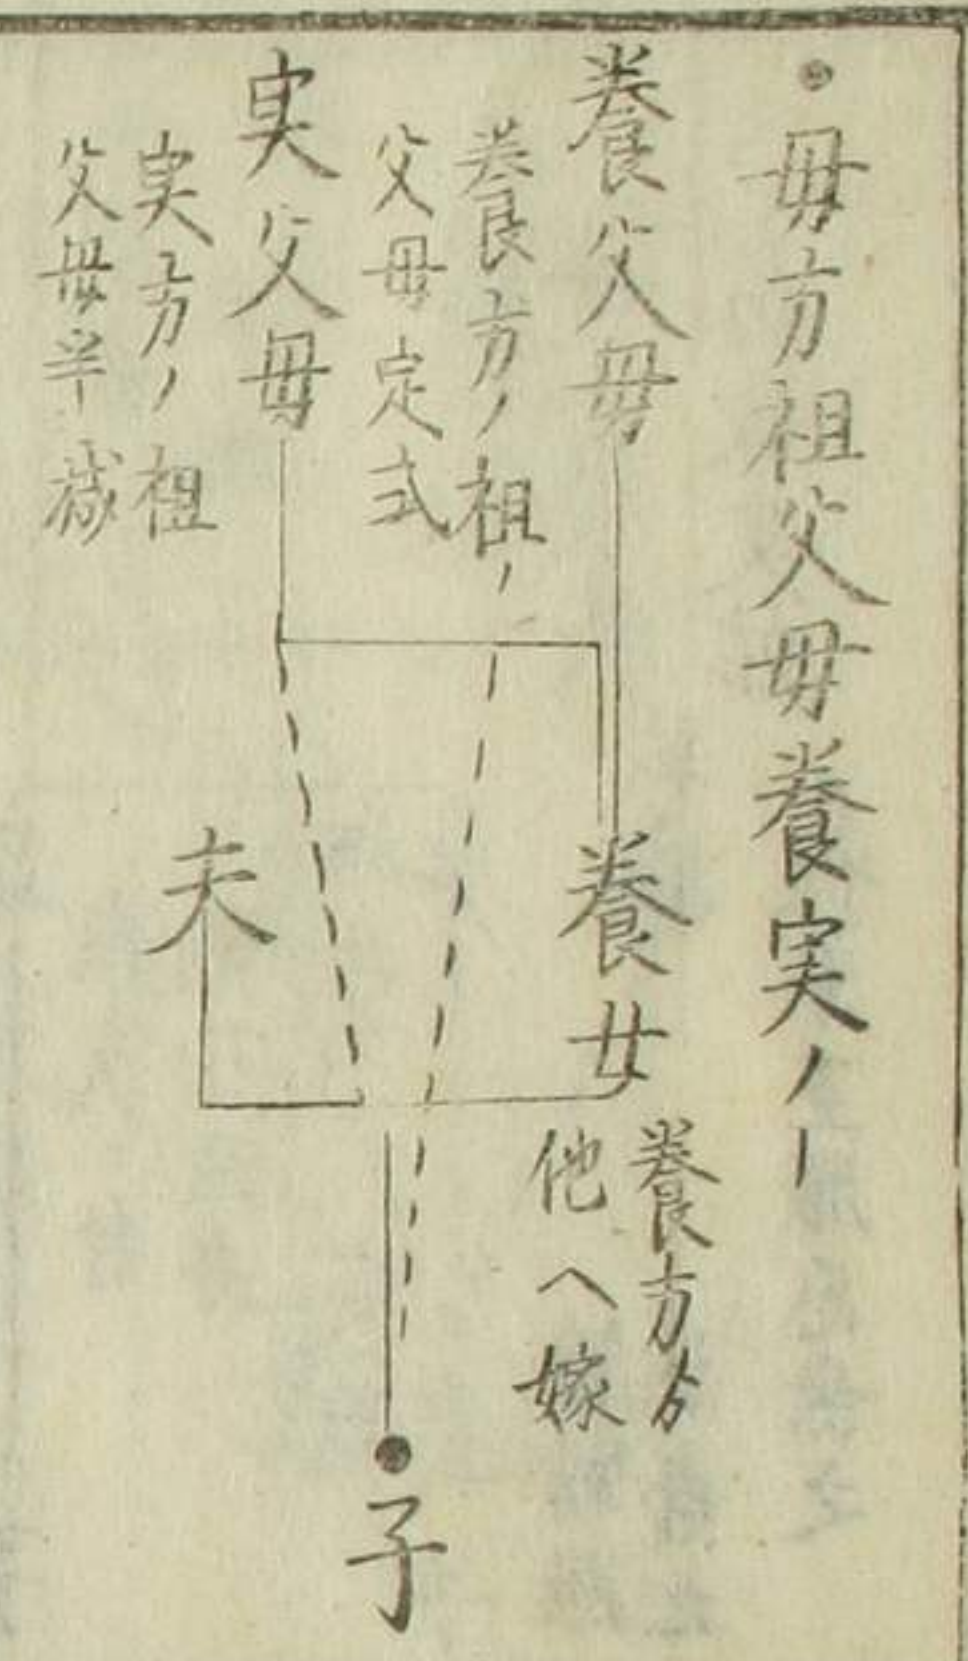 ●母方祖父母養実ノー
養父母
養方ノ祖ノ
父母定式
実父母
実方ノ祖
父母半減
養女
養方ゟ
他へ嫁
夫
子